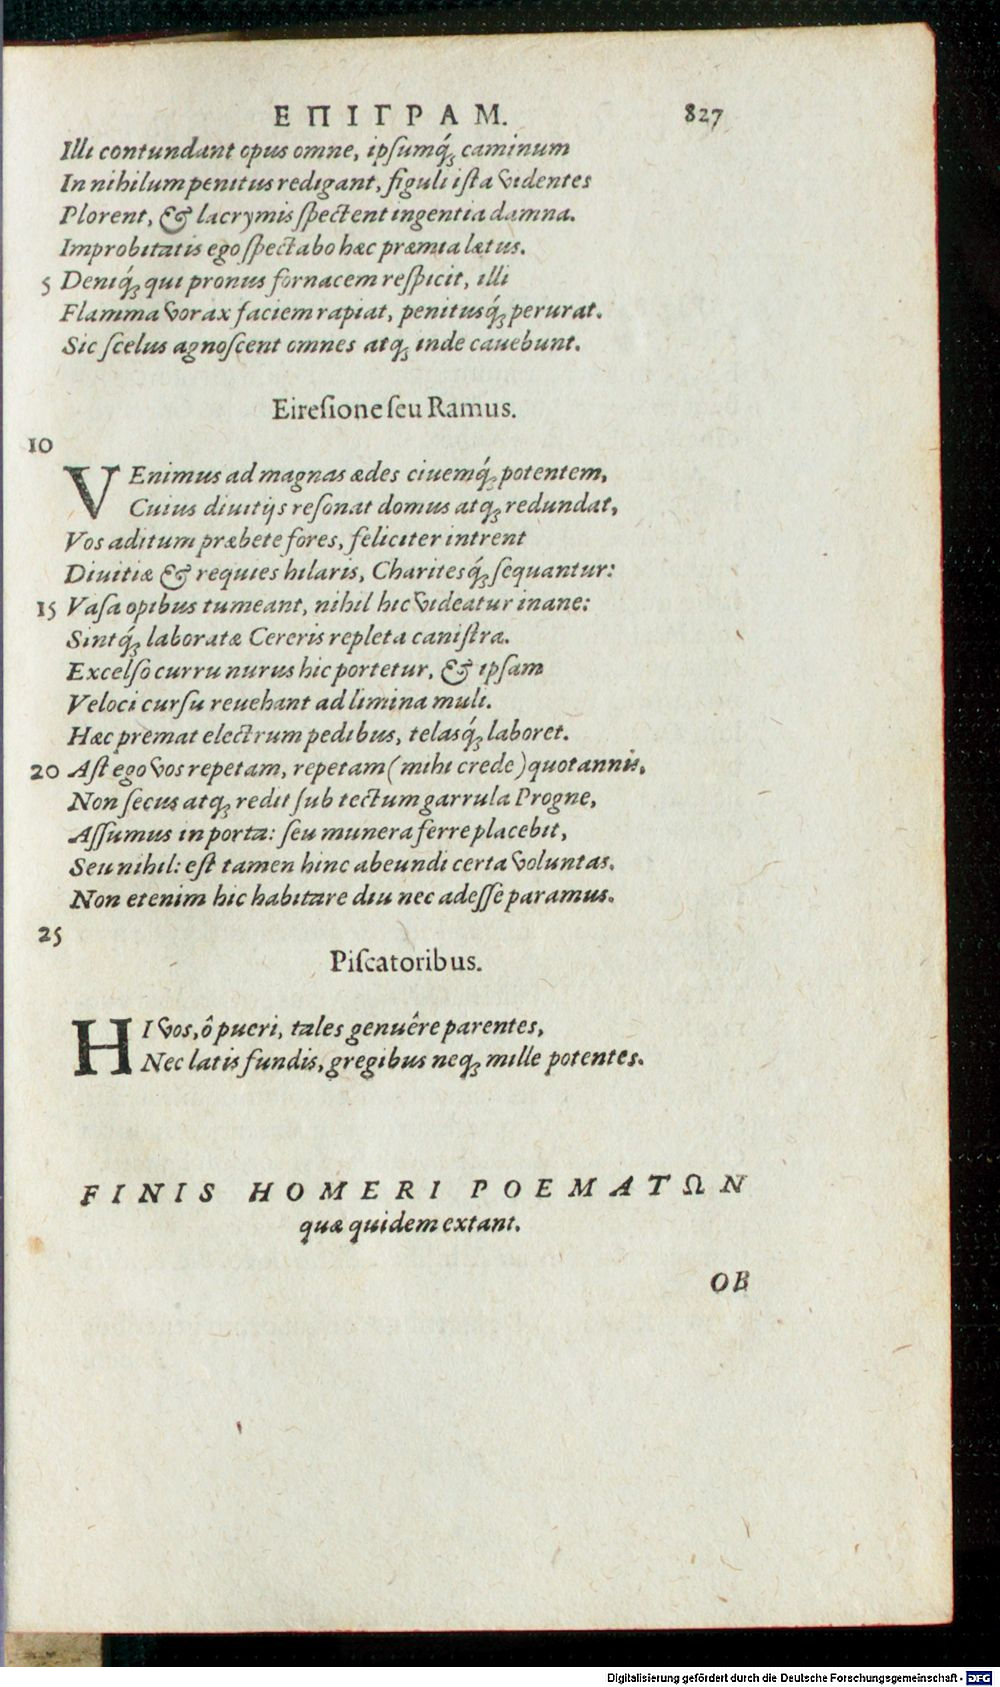 ΕΠΙΓΡΑΜ. 827
Illi contundant opus omne, ipſumq́ꝫ caminum
In nihilum penitus redigant, figuli iſta videntes
Plorent, & lacrymis ſpectent ingentia damna.
Improbitatis ego ſpectabo hæc præmia lætus.
5 Deniq́ꝫ qui pronus fornacem reſpicit, illi
Flamma vorax faciem rapiat, penitusq́ꝫ perurat.
Sic ſcelus agnoſcent omnes atqꝫ inde cauebunt.
Eireſione ſeu Ramus.
10
VEnimus ad magnas ædes ciuemq́ꝫ potentem,
Cuius diuitijs reſonat domus atqꝫ redundat,
Vos aditum præbete fores, feliciter intrent
Diuitiæ & requies hilaris, Charitesq́ꝫ ſequantur:
15 Vaſa opibus tumeant, nihil hic videatur inane:
Sintq́ꝫ laboratæ Cereris repleta caniſtra.
Excelſo curru nurus hic portetur, & ipſam
Veloci curſu reuehant ad limina muli.
Hæc premat electrum pedibus, telasq́ꝫ laboret.
20 Aſt ego vos repetam, repetam (mihi crede) quotannis,
Non ſecus atqꝫ redit ſub tectum garrula Progne,
Aſſumus in porta: ſeu munera ferre placebit,
Seu nihil: eſt tamen hinc abeundi certa voluntas.
Non etenim hic habitare diu nec adeſſe paramus.
25
Piſcatoribus.
HI vos, ô pueri, tales genuêre parentes,
Nec latis fundis, gregibus neqꝫ mille potentes.
FINIS HOMERI POEMATΩN
quæ quidem extant.
OB
Digitalisierung gefördert durch die Deutsche Forschungsgemeinschaft - DFG